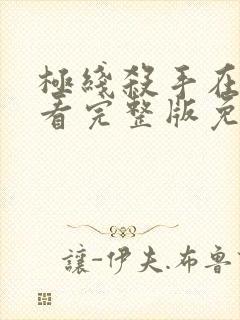 極綫殺手在
看完整版免
讓-伊夫.布魯